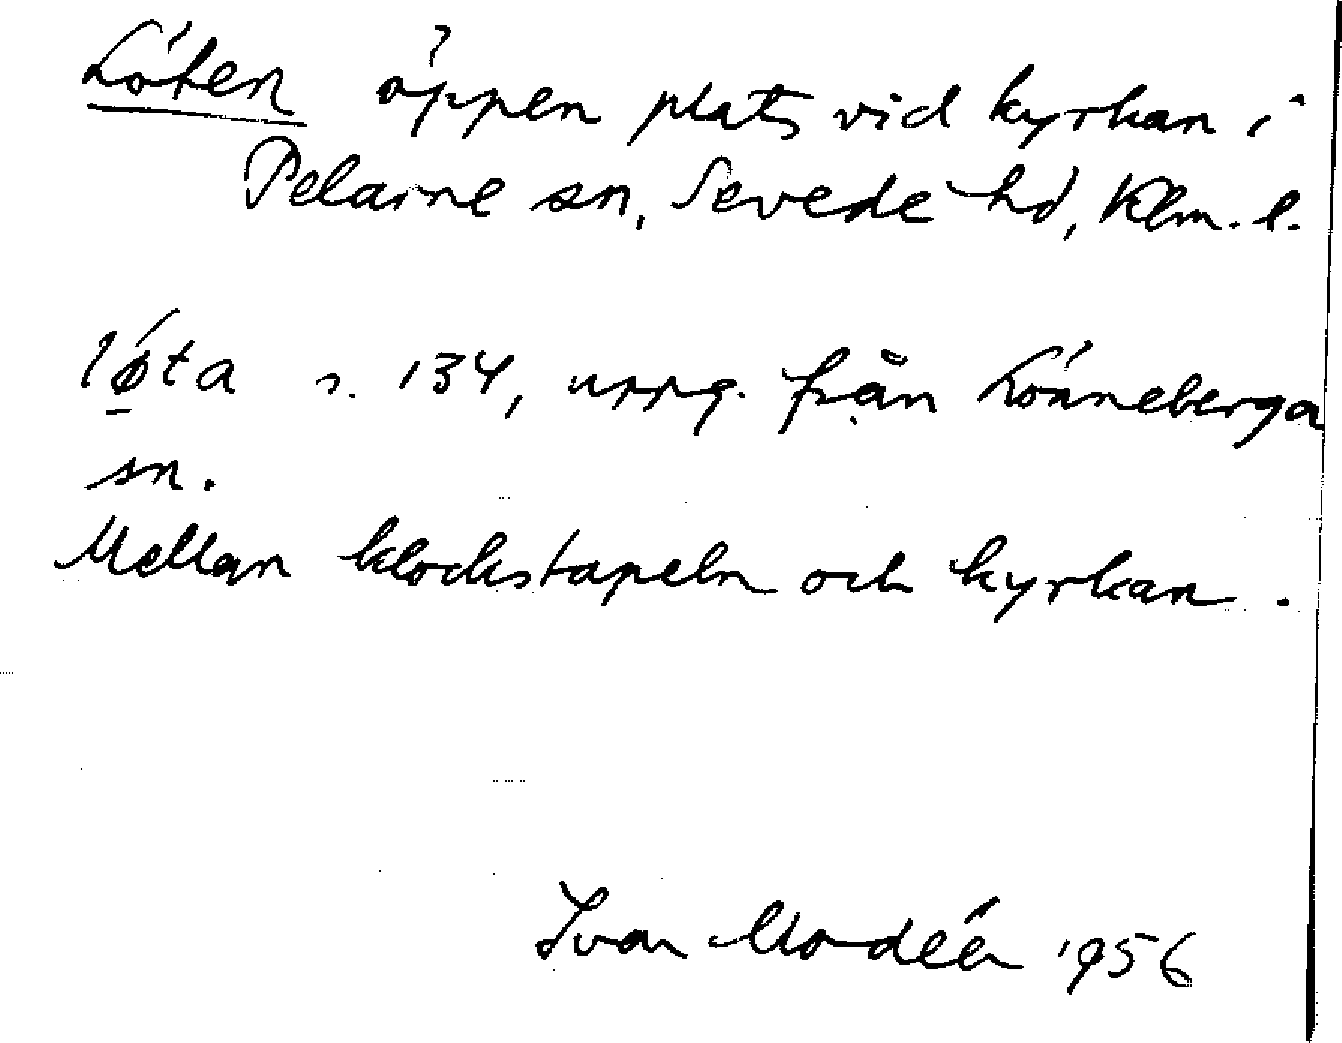 Löten öppen plats vid kyrkan i
Pelarne sn, Sevede hd, Klm. l.
lǿ̱ta s. 134, uppg. från Lönneberga
sn.
Mellan klockstapeln och kyrkan.
Ivar Modéer 1956